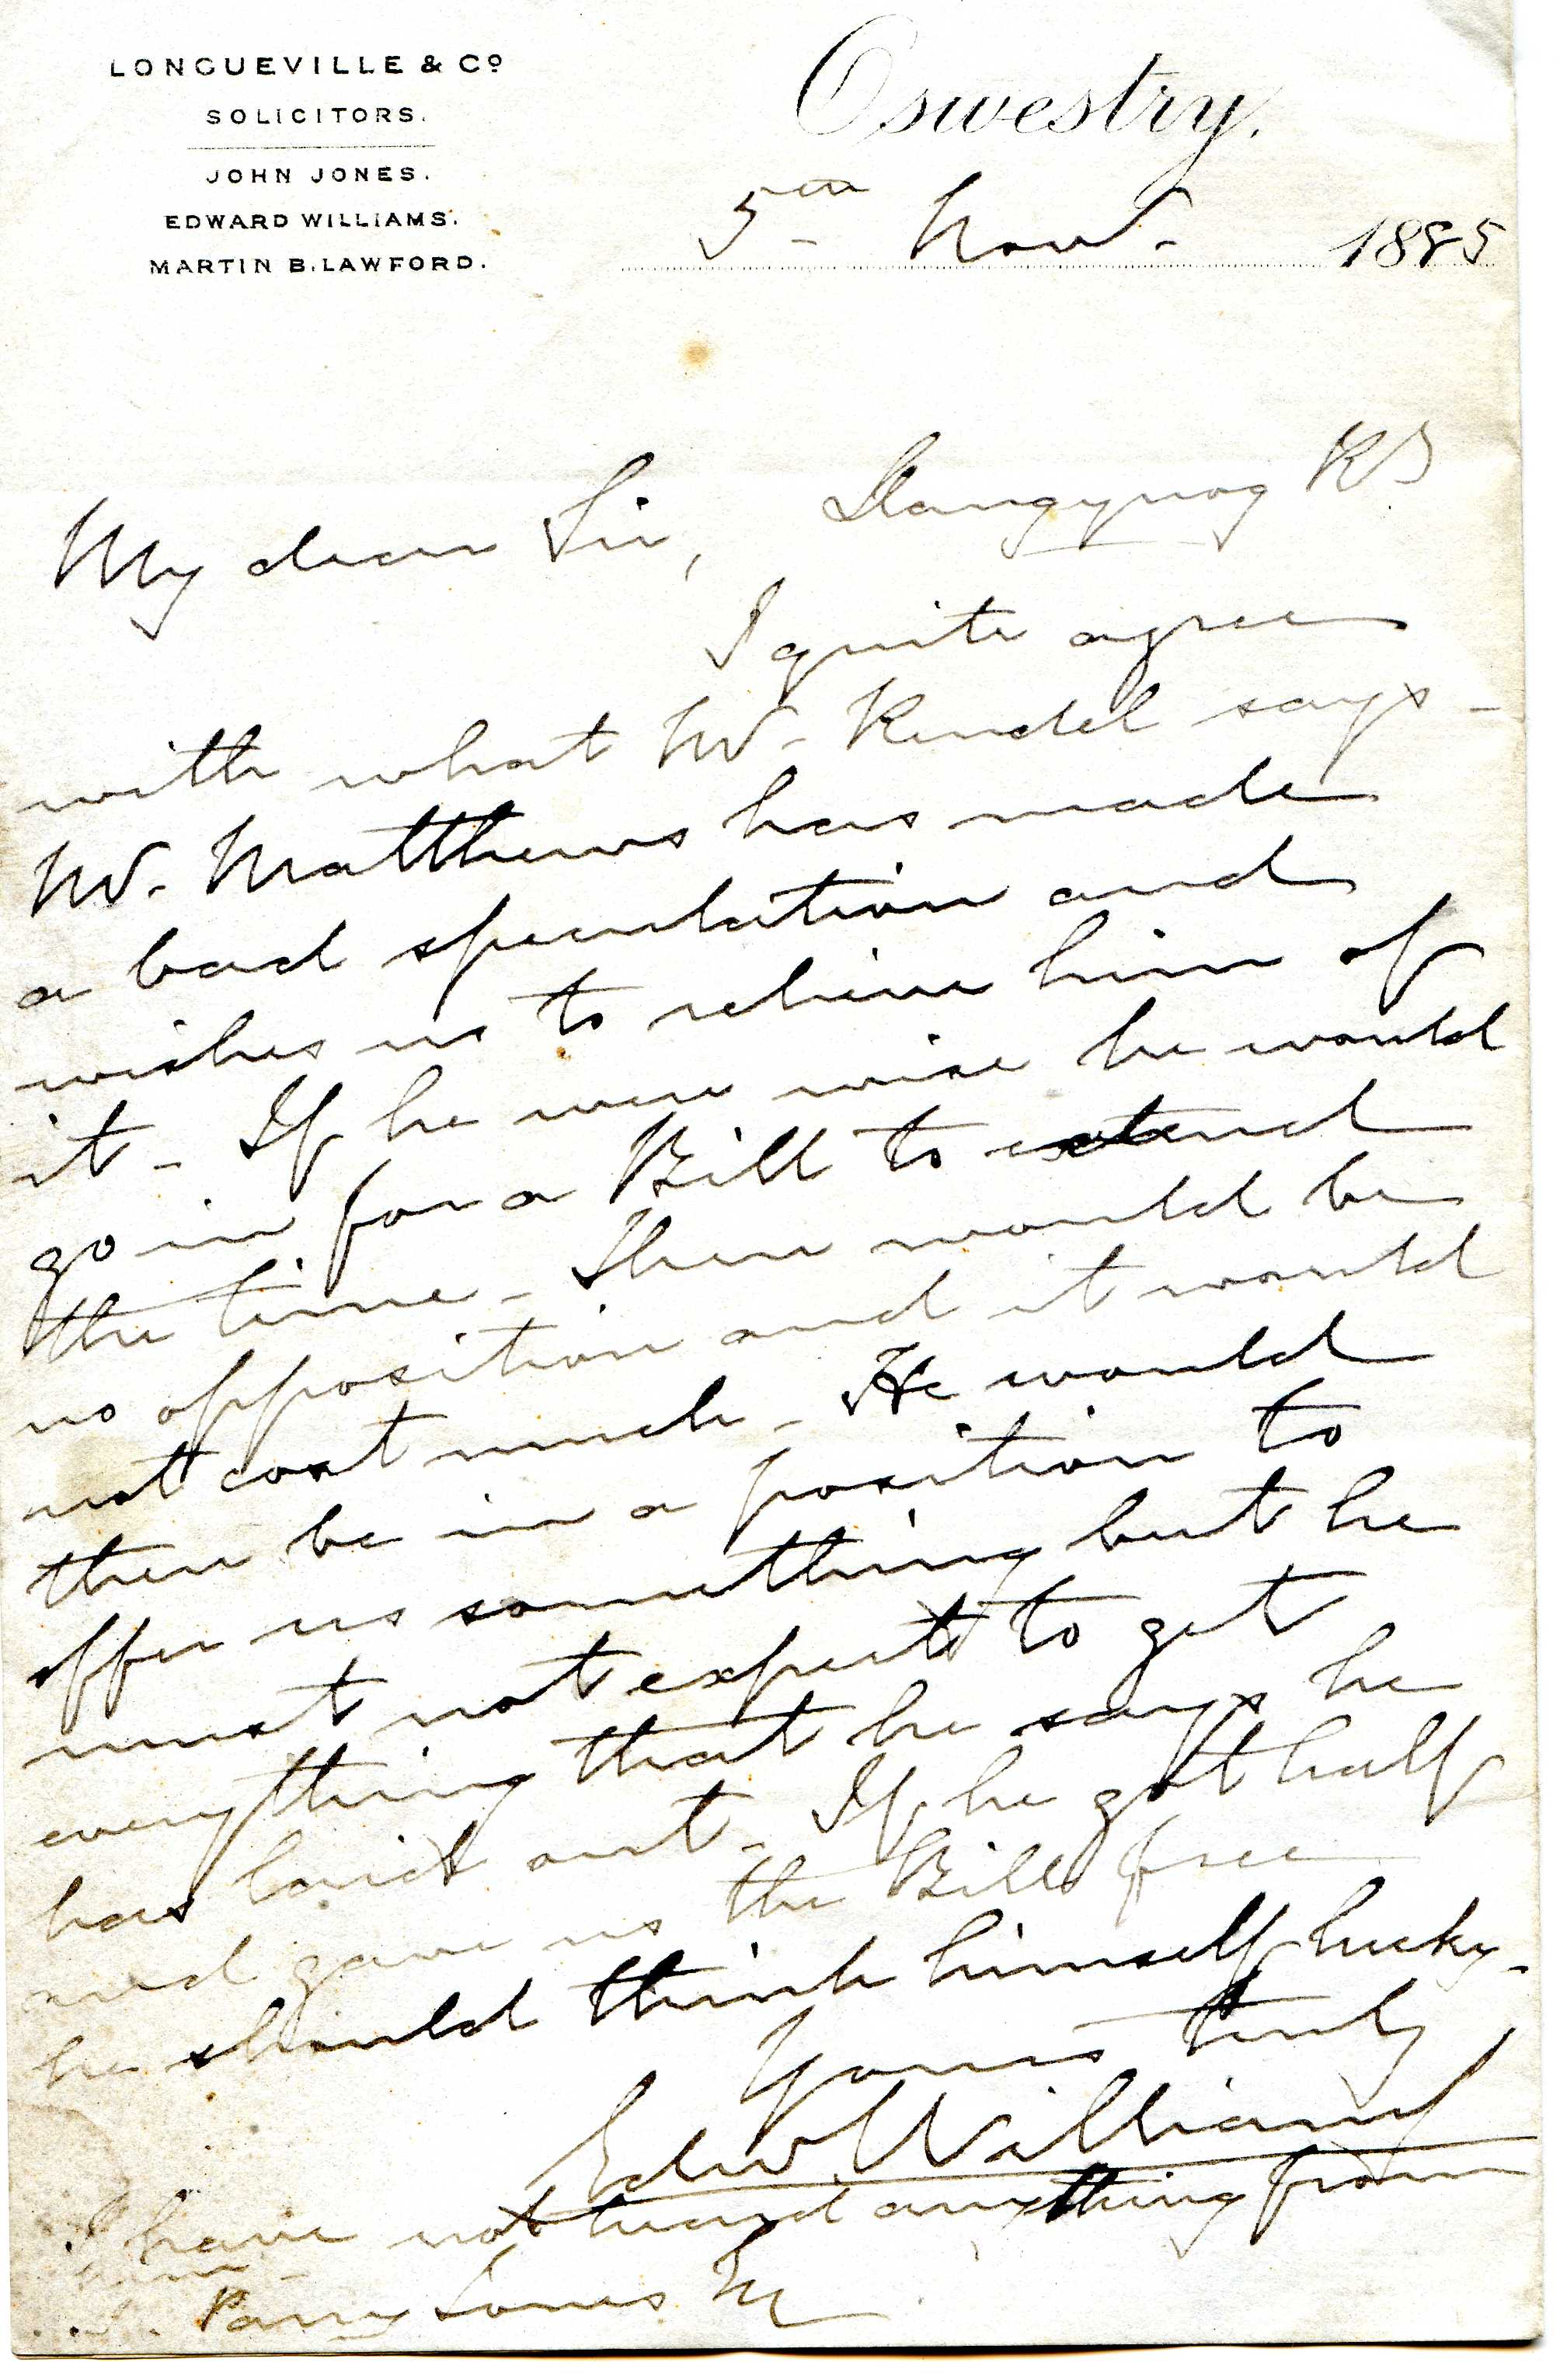 LONGUEVILLE & Co
SOLICITORS.
JOHN JONES.
EDWARD WILLIAMS.
MARTIN B. LAWFORD.
Oswestry.
5th Novr. 1885
My dear Sir, Llangynog Ry
I quite agree
with what Mr. Rendel says -
Mr. Matthews has made
a bad speculation and
wishes us to relieve him of
it - If he were wise he would
go in for a Bill to extend
the time - There would be
no opposition and it would
not cost much - He would
then be in a position to
offer us something but he
must not expect to get
everything that he says he
has laid out - If he got half
and gave us the Bill free
he should think himself lucky -
Yours truly,
Edw Williams
I have not heard anything from
him -
Parry Jones Esq